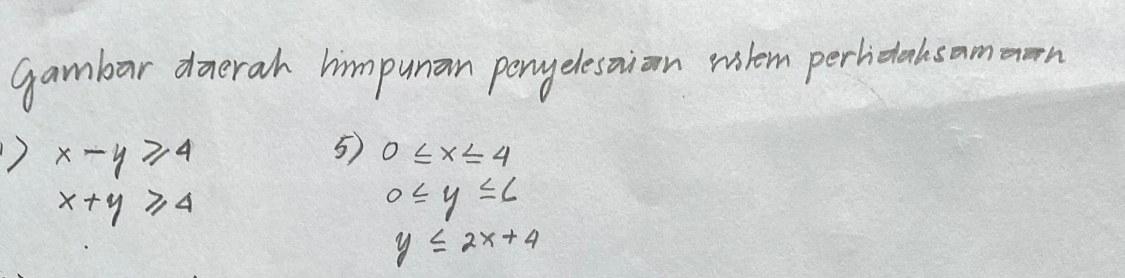 Gambar daerah himpunan penyelesaian sistem pertidaksamaan
) x - y ⩾ 4
x + y ⩾ 4
5) 0 ≤ x ≤ 4
0 ≤ y ≤ 6
y ≤ 2x + 4